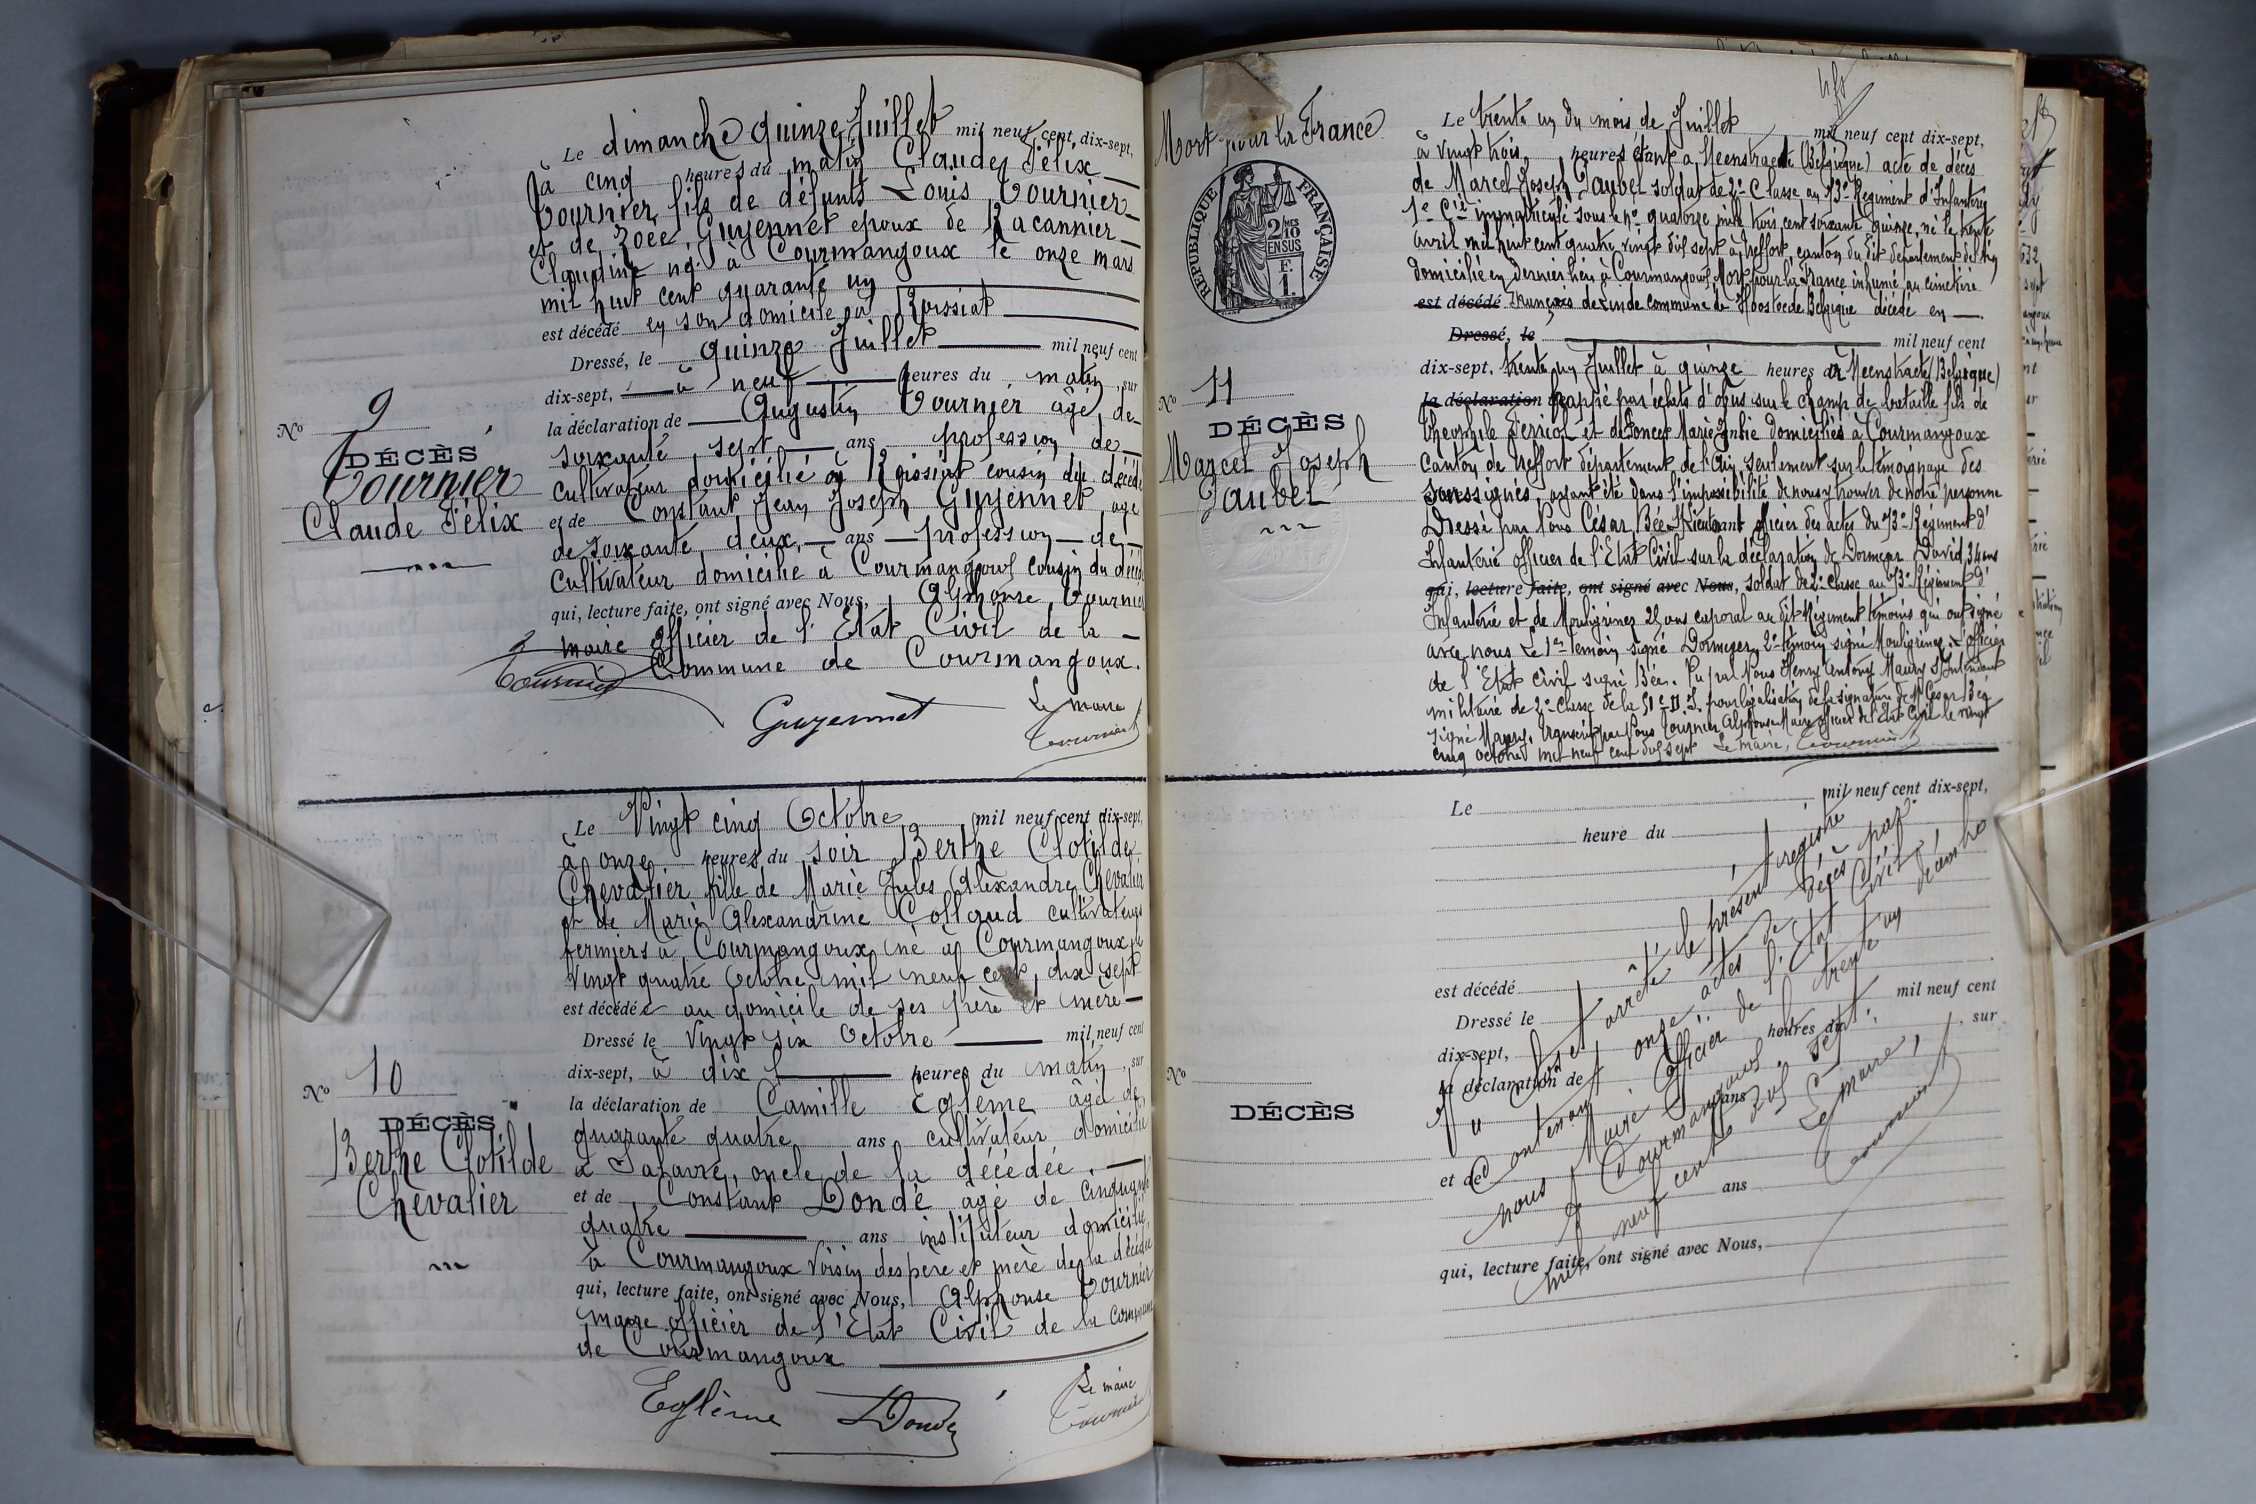 Le dimanche quinze Juillet mil neuf cent dix-sept,
à cinq heures du matin Claude Félix
Tournier fils de défunts Louis Tournier
et de Zoée Guyennet époux de Racannier
Claudine né à Courmangoux le onze mars
mil huit cent quarante un
est décédé en son domicile à Roissiat
Dressé, le quinze Juillet mil neuf cent
dix-sept, à neuf heures du matin, sur
la déclaration de Augustin Tournier âgé de
soixante sept ans profession de
cultivateur domicilié à Roissiat cousin du décédé
et de Constant Jean Joseph Guyennet âgé
de soixante deux ans profession de
cultivateur domicilié à Courmangoux cousin du décédé
qui, lecture faite, ont signé avec Nous, Alphonse Tournier
maire officier de l'Etat Civil de la
Commune de Courmangoux.
Tournier
Guyennet
Le maire
Tournier
No 9
DÉCÈS
Tournier
Claude Félix
Le Vingt cinq Octobre mil neuf cent dix-sept,
à onze heures du soir Berthe Clotilde
Chevalier fille de Marie Jules Alexandre Chevalier
et de Marie Alexandrine Colland cultivateurs
fermiers à Courmangoux né à Courmangoux le
Vingt quatre Octobre mil neuf cent dix sept
est décédée au domicile de ses père et mère
Dressé le Vingt six Octobre mil neuf cent
dix-sept, à dix heures du matin, sur
la déclaration de Camille Eglème âgé de
quarante quatre ans cultivateur domicilié
à oncle de la décédée.
et de Constant Donde âgé de cinquante
quatre ans instituteur domicilié
à Courmangoux Voisin des père et mère de la décédée
qui, lecture faite, ont signé avec Nous, Alphonse Tournier
maire officier de l'Etat Civil de la commune
de Courmangoux
Eglème Donde
Le maire
Tournier
No 10
DÉCÈS
Berthe Clotilde
Chevalier
Mort pour la France
RÉPUBLIQUE FRANÇAISE
2/10
EN SUS
F.
1.
No 11
DÉCÈS
Marcel Joseph
Jaubel
Le trente un du mois de Juillet mil neuf cent dix-sept,
à Vingt trois heures étant à (Belgique) acte de décès
de Marcel Joseph Jaubel soldat de 2e Classe au 73e Régiment d'Infanterie
1e Cie immatriculé sous le no quatorze mille trois cent soixante quinze, né le trente
avril mil huit cent quatre vingt dix sept à Treffort, canton du dit département de l'Ain
domicilié en dernier lieu à Courmangoux Mort pour la France inhumé au cimetière
est décédé Français de commune de Belgique décédé en
Dressé, le mil neuf cent
dix-sept, trente un Juillet à quinze heures à (Belgique)
la déclaration frappé par éclats d'obus sur le champ de bataille fils de
Théophile et de Marie domiciliés à Courmangoux
Canton de Treffort département de l'Ain, seulement sur le témoignage des
soussignés, ayant été dans l'impossibilité de nous y trouver de notre personne
Dressé par Nous César Bée Lieutenant officier des actes du 73e Régiment d'
Infanterie officier de l'Etat Civil sur la déclaration de David 34 ans
qui, lecture faite, ont signé avec Nous, soldat de 2e Classe au 73e Régiment d'
Infanterie et de 25 ans caporal au dit Régiment témoins qui ont signé
avec nous Le 1er témoin signé 2e témoin signé L'officier
de l'Etat Civil signé Bée. Vu par Nous Henry Antony Maury S/Intendant
militaire de 2e Classe de la 51e D.I. pour légalisation de la signature de Mr César Bée
signé Maury. Transcrit par Nous Tournier Alphonse Maire officier de l'Etat Civil le vingt
cinq octobre mil neuf cent dix sept Le maire, Tournier
Le mil neuf cent dix-sept,
heure du
est décédé
Dressé le mil neuf cent
dix-sept, heures du , sur
la déclaration de
ans
et de
ans
qui, lecture faite, ont signé avec Nous,
No
DÉCÈS
Clos et arrêté le présent registre
contenant onze actes de Décès par
nous Maire Officier de l'Etat Civil
de Courmangoux le trente un décembre
mil neuf cent dix sept.
Le maire,
Tournier